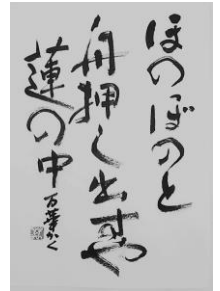 ほのぼのと
舟押し出すや
蓮の中
万葉かく